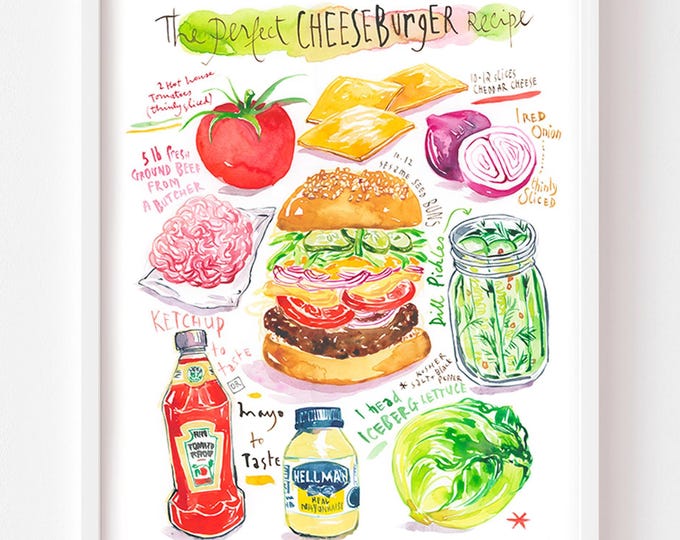 The perfect CHEESEBURGER recipe
2 Hot house
Tomatoes
(thinly sliced)
10-12 slices
CHEDDAR CHEESE
1 RED
Onion
thinly
SLICED
5 lb fresh
GROUND BEEF
FROM
A BUTCHER
10-12
sesame seed BUNS
Dill Pickles
KETCHUP
to
taste
OR
Mayo
to
Taste
* KOSHER
SALT & BLACK
PEPPER
1 head
ICEBERG LETTUCE
TOMATO
HELLMAN
REAL
MAYONNAISE